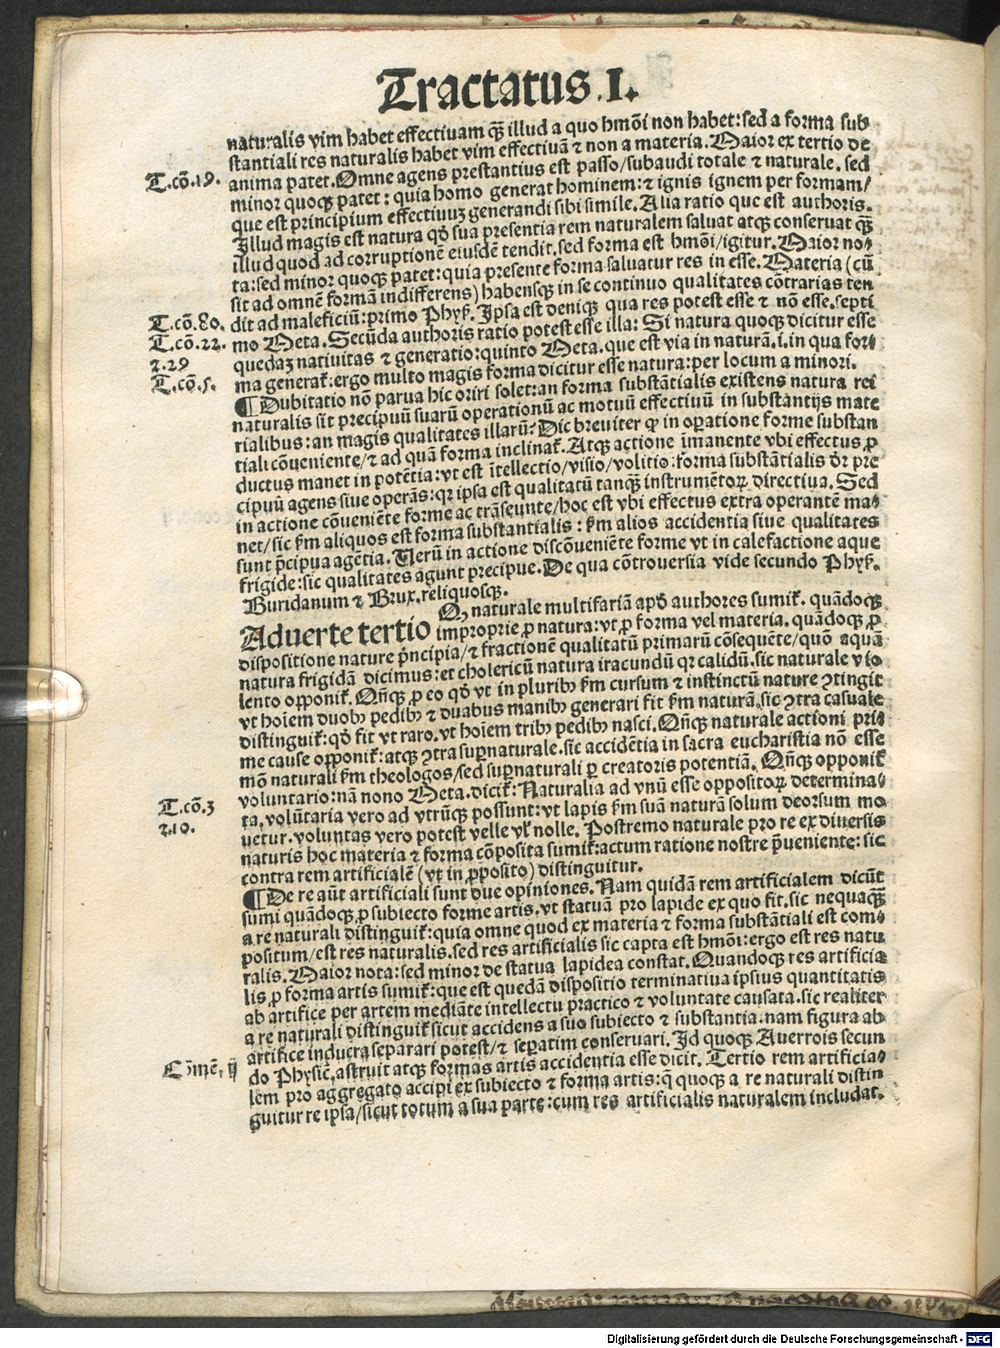 Tractatus .I.
naturalis vim habet effectiuam qȝ illud a quo hmōi non habet: sed a forma sub
stantiali res naturalis habet vim effectiuā ⁊ non a materia. Maior ex tertio de
T.cō.19. anima patet. Omne agens prestantius est passo/subaudi totale ⁊ naturale. sed
minor quoqȝ patet: quia homo generat hominem: ⁊ ignis ignem per formam/
que est principium effectiuuȝ generandi sibi simile. Alia ratio que est authoris.
Illud magis est natura qđ sua presentia rem naturalem saluat atqȝ conseruat qȝ
illud quod ad corruptionē eiusdē tendit. sed forma est hmōi/igitur. Maior no-
ta: sed minor quoqȝ patet: quia presente forma saluatur res in esse. Materia (cū
sit ad omnē formā indifferens) habensqȝ in se continuo qualitates cōtrarias ten
T.cō.80. dit ad maleficiū: primo Phyſ. Ipsa est deniqȝ qua res potest esse ⁊ nō esse. septi
T.cō.22. mo Meta. Secūda authoris ratio potest esse illa: Si natura quoqȝ dicitur esse
⁊.29 quedaȝ natiuitas ⁊ generatio: quinto Meta. que est via in naturā .i. in qua for-
T.cō.5. ma generat̄: ergo multo magis forma dicitur esse natura: per locum a minori.
¶ Dubitatio nō parua hic oriri solet: an forma substātialis existens natura rei
naturalis sit precipuū suarū operationū ac motuū effectiuū in substantijs mate
rialibus: an magis qualitates illarū? Dic breuiter ꝙ in operatione forme substan
tiali cōueniente/⁊ ad quā forma inclinat̄. Atqȝ actione īmanente vbi effectus ꝓ
ductus manet in potētia: vt est ītellectio/visio/volitio: forma substātialis dr̄ pre
cipuū agens siue operās: qꝛ ipsa est qualitatū tanqȝ instrumētoꝝ directiua. Sed
in actione cōueniēte forme ac trāseunte/hoc est vbi effectus extra operantē ma-
net/sic ẜm aliquos est forma substantialis: ẜm alios accidentia siue qualitates
sunt p̄cipua agētia. Verū in actione discōueniēte forme vt in calefactione aque
frigide: sic qualitates agunt precipue. De qua cōtrouersia vide secundo Phyſ.
Buridanum ⁊ Brux. reliquosqȝ.
Aduerte tertio Ꝙ naturale multifariā apđ authores sumit̄. quādoqȝ
improprie ꝓ natura: vt ꝓ forma vel materia. quādoqȝ ꝓ
dispositione nature p̄ncipia/⁊ fractionē qualitatū primarū cōsequēte/quō aquā
natura frigidā dicimus: et cholericū natura iracundū qꝛ calidū. sic naturale vio
lento opponit̄. Qn̄qȝ ꝓ eo qđ vt in pluribꝰ ẜm cursum ⁊ instinctū nature ꝯtingit
vt hoiem duobꝰ pedibꝰ ⁊ duabus manibꝰ generari fit ẜm naturā. sic ꝯtra casuale
distinguit̄: qđ fit vt raro. vt hoiem tribꝰ pedibꝰ nasci. Qn̄qȝ naturale actioni pri-
me cause opponit̄: atqȝ ꝯtra suꝑnaturale. sic accidētia in sacra eucharistia nō esse
mō naturali ẜm theologos/sed suꝑnaturali ꝑ creatoris potentiā. Qn̄qȝ opponit̄
T.cō.3 voluntario: nā nono Meta. dicit̄: Naturalia ad vnū esse oppositoꝝ determina-
⁊.10. ta. volūtaria vero ad vtrūqȝ possunt: vt lapis ẜm suā naturā solum deorsum mo
uetur. voluntas vero potest velle vl̓ nolle. Postremo naturale pro re ex diuersis
naturis hoc materia ⁊ forma cōposita sumit̄: actum ratione nostre p̄ueniente: sic
contra rem artificialē (vt in ꝓposito) distinguitur.
¶ De re aūt artificiali sunt due opiniones. Nam quidā rem artificialem dicūt
sumi quādoqȝ ꝓ subiecto forme artis. vt statuā pro lapide ex quo fit. sic nequaqȝ
a re naturali distinguit̄: quia omne quod ex materia ⁊ forma substātiali est com-
positum/est res naturalis. sed res artificialis sic capta est hmōi: ergo est res natu
ralis. Maior nota: sed minor de statua lapidea constat. Quandoqȝ res artificia
lis ꝓ forma artis sumit̄: que est quedā dispositio terminatiua ipsius quantitatis
ab artifice per artem mediāte intellectu practico ⁊ voluntate causata. sic realiter
a re naturali distinguit̄ sicut accidens a suo subiecto ⁊ substantia. nam figura ab
artifice inducta separari potest/⁊ seꝑatim conseruari. Id quoqȝ Auerrois secun
Cōmē. ij do Physic. astruit atqȝ formas artis accidentia esse dicit. Tertio rem artificia-
lem pro aggregato accipi ex subiecto ⁊ forma artis: q̄ quoqȝ a re naturali distin
guitur re ipsa/sicut totum a sua parte: cum res artificialis naturalem includat.
Digitalisierung gefördert durch die Deutsche Forschungsgemeinschaft - DFG